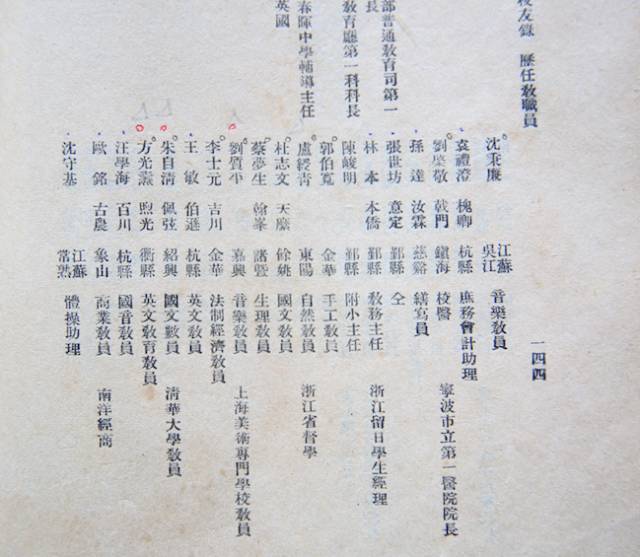 校友錄 歷任教職員
一四四
部普通教育司第一
長
教育廳第一科科長
春暉中學輔導主任
英國
沈秉廉 江蘇吳江 音樂教員
袁禮澄 槐卿 杭縣 庶務會計助理
劉慶敬 戟門 鎮海 校醫 寧波市立第一醫院院長
孫達 汝霖 慈谿 繕寫員
張世坊 意定 鄞縣 仝
林本 本僑 鄞縣 教務主任 浙江留日學生經理
陳峻明 鄞縣 附小主任
郭伯寬 金華 手工教員
盧綬青 東陽 自然教員 浙江省督學
杜志文 天縻 餘姚 國文教員
蔡夢生 翰峯 諸暨 生理教員
劉質平 嘉興 音樂教員 上海美術專門學校教員
李士元 吉川 金華 法制經濟教員
王敏 伯遜 杭縣 英文教員
朱自清 佩弦 紹興 國文教員 清華大學教員
方光燾 煦光 衢縣 英文教育教員
汪學海 百川 杭縣 國音教員
歐銘 古農 象山 商業教員 南洋經商
沈守基 江蘇常熟 體操助理